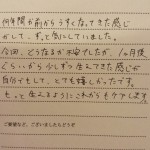 何年間か前からうすくなってきた感じ
がして、ずっと気にしていました。
今回、どうなるか不安でしたが、1ヶ月後
ぐらいから少しずつ生えてきた感じが
自分でもして、とても嬉しかったです。
もっと生えるようにこれからもケアします
ご要望など、ございましたらどうぞ